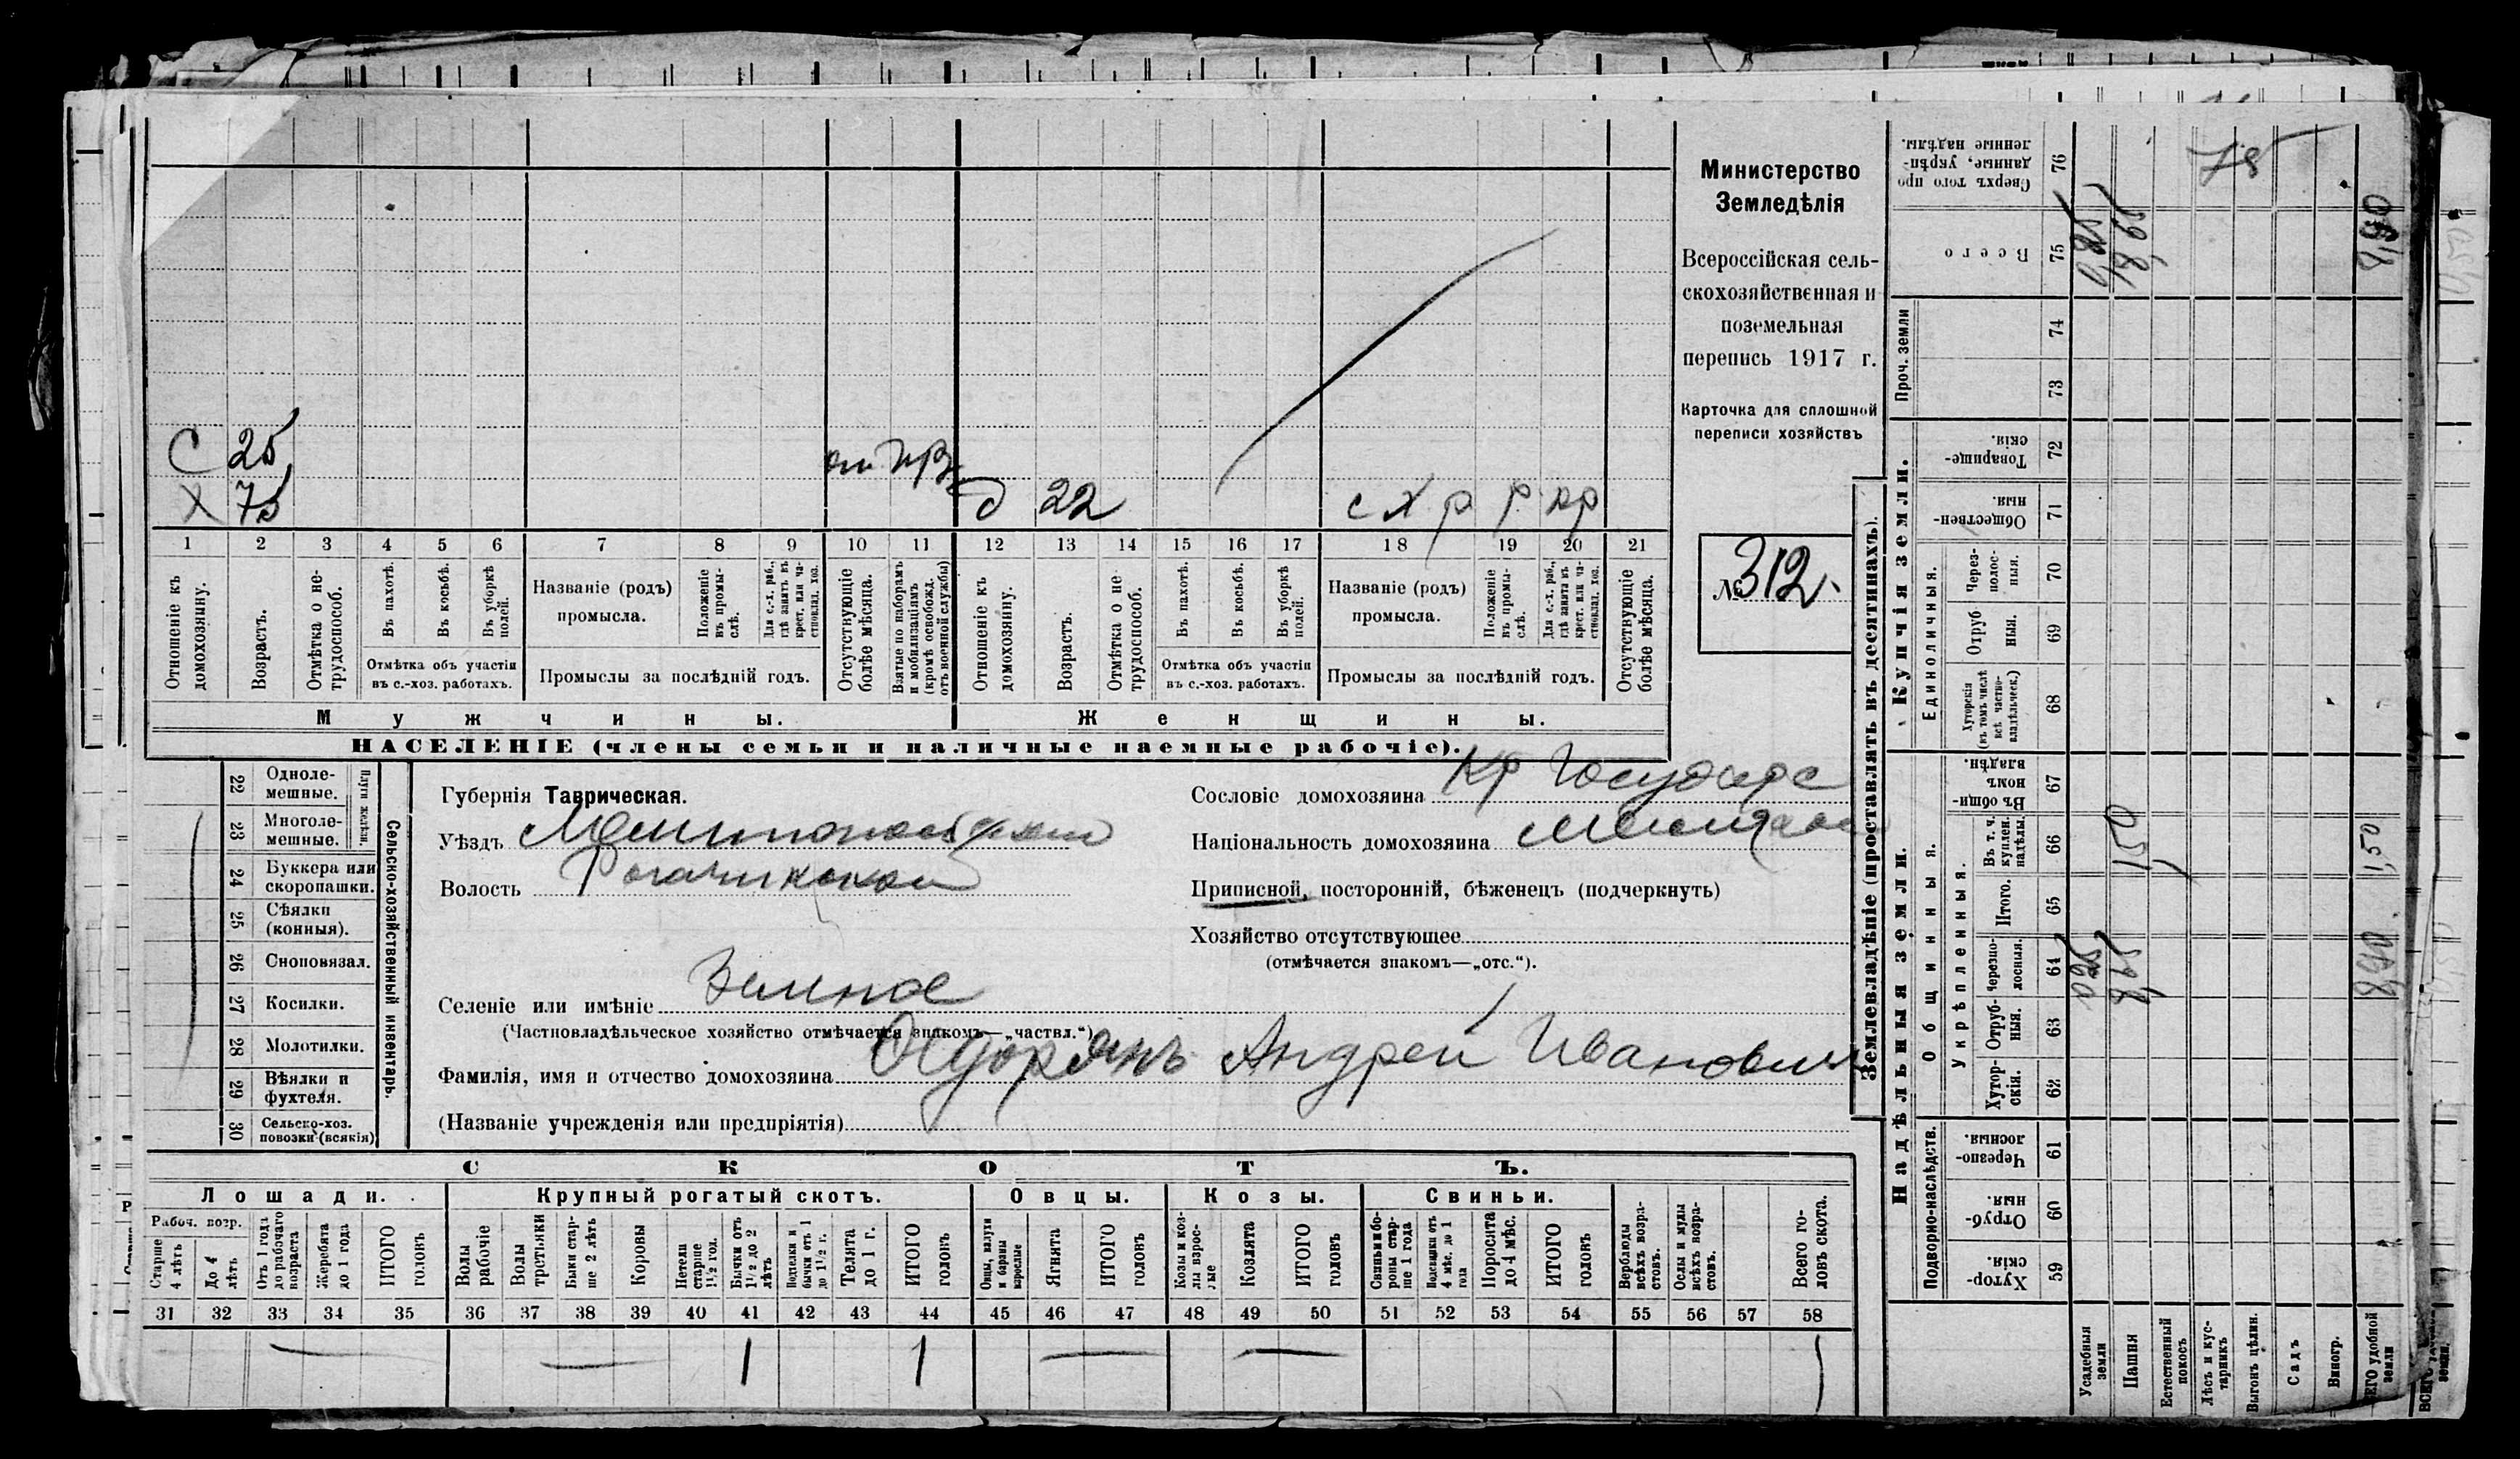 Министерство
Земледѣлія
Всероссійская сель-
скохозяйственная и
поземельная
перепись 1917 г.
Карточка для сплошной
переписи хозяйствъ
№ 312.
С 25
Х 75
д 22 с х р р кр
1 2 3 4 5 6 7 8 9 10 11 12 13 14 15 16 17 18 19 20 21
Отношеніе къ домохозяину.
Возрастъ.
Отмѣтка о не-трудоспособ.
Въ пахотѣ.
Въ косьбѣ.
Въ уборкѣ полей.
Отмѣтка объ участіи
въ с.-хоз. работахъ.
Названіе (родъ)
промысла.
Положеніе въ промы-слѣ.
Для с.-х. раб., гдѣ занятъ въ крест. или ча-стновлад. хоз.
Промыслы за послѣдній годъ.
Отсутствующіе болѣе мѣсяца.
Взятые по наборамъ и мобилизаціямъ (кромѣ освобожд. отъ военной службы)
Отношеніе къ домохозяину.
Возрастъ.
Отмѣтка о не трудоспособ.
Въ пахотѣ.
Въ косьбѣ.
Въ уборкѣ полей.
Отмѣтка объ участіи
въ с.-хоз. работахъ.
Названіе (родъ)
промысла.
Положеніе въ промы-слѣ.
Для с.-х. раб., гдѣ занята въ крест. или ча-стновлад. хоз.
Промыслы за послѣдній годъ.
Отсутствующіе болѣе мѣсяца.
Мужчины.
Женщины.
НАСЕЛЕНІЕ (члены семьи и наличные наемные рабочіе).
Сельско-хозяйственный инвентарь.
Плуги желѣзн.
22 Одноле-мешные.
23 Многоле-мешные.
24 Буккера или скоропашки.
25 Сѣялки (конныя).
26 Сноповязал.
27 Косилки.
28 Молотилки.
29 Вѣялки и фухтеля.
30 Сельско-хоз. повозки (всякія)
Губернія Таврическая.
Уѣздъ
Волость
Селеніе или имѣніе
(Частновладѣльческое хозяйство отмѣчается знакомъ—„частвл.“)
Фамилія, имя и отчество домохозяина Андрей Ивановичъ
(Названіе учрежденія или предпріятія)
Сословіе домохозяина Кр
Національность домохозяина
Приписной, посторонній, бѣженецъ (подчеркнуть)
Хозяйство отсутствующее
(отмѣчается знакомъ—„отс.“).
СКОТЪ.
Лошади.
Крупный рогатый скотъ.
Овцы.
Козы.
Свиньи.
Рабоч. возр.
Старше 4 лѣтъ
До 4 лѣтъ
Отъ 1 года до рабочаго возраста
Жеребята до 1 года
ИТОГО головъ
Волы рабочіе
Волы третьяки
Быки стар-ше 2 лѣтъ
Коровы
Нетели старше 1½ год.
Бычки отъ 1½ до 2 лѣтъ
Подтелки и бычки отъ 1 до 1½ г.
Телята до 1 г.
ИТОГО головъ
Овцы, валухи и бараны взрослые
Ягнята
ИТОГО головъ
Козы и коз-лы взрос-лые
Козлята
ИТОГО головъ
Свиньи и бо-роны стар-ше 1 года
Подсвинки отъ 4 мѣс. до 1 года
Поросята до 4 мѣс.
ИТОГО головъ
Верблюды всѣхъ возра-стовъ.
Ослы и мулы всѣхъ возра-стовъ.
Всего го-ловъ скота.
31 32 33 34 35 36 37 38 39 40 41 42 43 44 45 46 47 48 49 50 51 52 53 54 55 56 57 58
1 1 1
Землевладѣніе (проставлять въ десятинахъ).
Надѣльныя земли.
Купчія земли.
Проч. земли
Всего
Сверхъ того про данные, укрѣп-ленные надѣлы.
Подворно-наслѣдств.
Общинныя.
Укрѣпленныя.
Единоличныя.
Хутор-скія. 59
Отруб-ныя. 60
Черезпо-лосныя. 61
Хутор-скія. 62
Отруб-ныя. 63
Черезпо-лосныя. 64
Итого. 65
Въ т. ч. куплен. надѣлы. 66
Въ общин-номъ владѣн. 67
Хуторскія (въ томъ числѣ всѣ частно-владѣльческ.) 68
Отруб ныя. 69
Через-полос-ныя. 70
Обществен-ныя. 71
Товарище-скія. 72
73
74
75
76
Усадебныя земли
Пашня
Естественный покосъ
Лѣсъ и кус-тарникъ
Выгонъ цѣлин.
Садъ
Виногр.
удобной земли
1,50
1,50
78